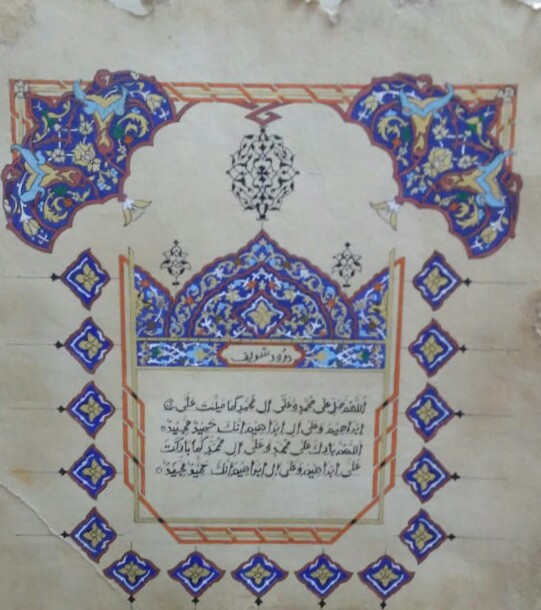 درود شریف
اللهم صل علی محمد و علی ال محمد کما صلیت علی
ابراهیم و علی ال ابراهیم انك حمید مجید
اللهم بارك علی محمد و علی ال محمد کما بارکت
علی ابراهیم و علی ال ابراهیم انك حمید مجید